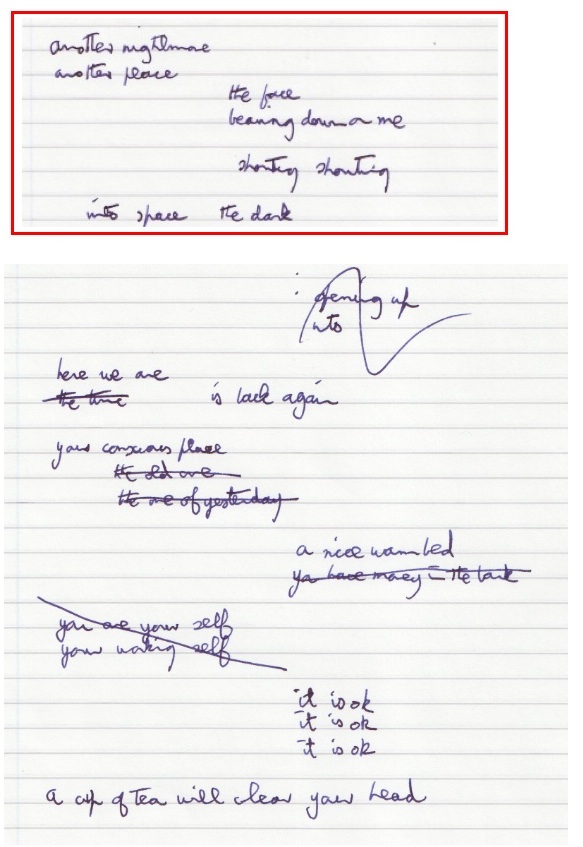 another nightmare
another place
the face
beaming down on me
shouting shouting
into space the dark
opening up
into
here we are
the time is back again
your conscious place
the old one
the me of yesterday
a nice warm bed
you have money in the bank
you are your self
your waking self
it is ok
it is ok
it is ok
a cup of tea will clear your head